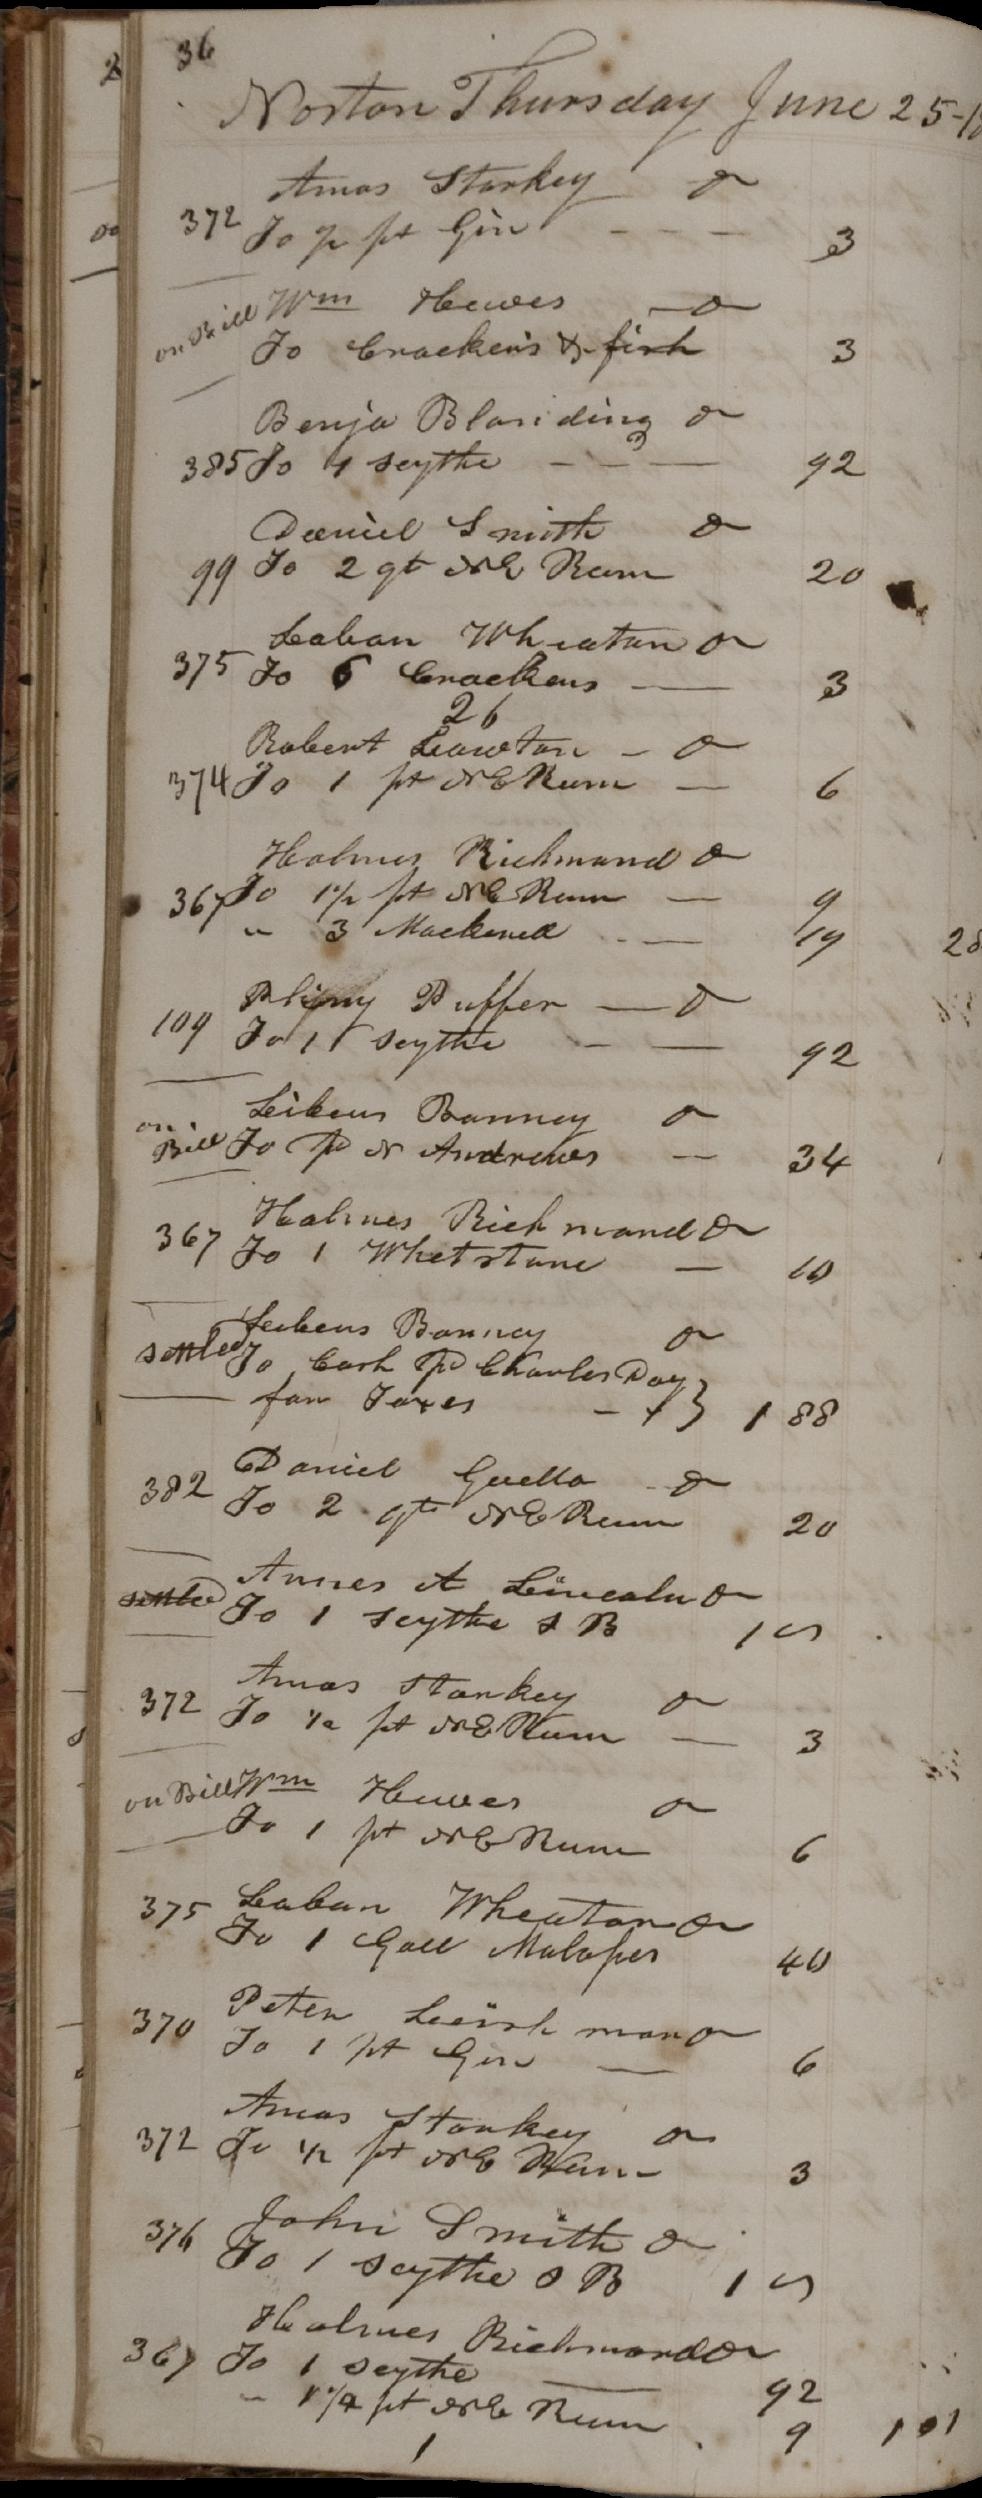 2
36
Norton Thursday June 25-18
Amos Starkey Dr
372 To ½ pt Gin - - - 3
on Bill Wm Hewes - Dr
To Crackers & fish 3
Benja Blanding Dr
385 To 1 scythe - - - 92
Daniel Smith Dr
99 To 2 qt N E Rum 20
Laban Wheaton Dr
375 To 6 Crackers - 3
26
Robert Lawton - Dr
374 To 1 pt N E Rum - 6
Holmes Richmond Dr
367 To 1½ pt N E Rum - 9
" 3 Mackerel - - 19 28
Pliny Puffer - Dr
109 To 1 scythe - - 92
on Bill
Leibeus Banney Dr
To pd N Andrews - 34
Holmes Richmond Dr
367 To 1 Whetstone - 10
Leibeus Banney Dr
settled To Cash pd Charles Day
for Taxes - } 1 88
Daniel Dr
382 To 2 qts N E Rum 20
Annes A Lincoln Dr
settled To 1 scythe S B 1 5
Amos Starkey Dr
372 To ½ pt N E Rum - 3
on Bill Wm Hewes Dr
To 1 pt N E Rum 6
375 Laban Wheaton Dr
To 1 Gall Molasses 40
Peter Leishman Dr
370 To 1 pt Gin - 6
Amos Starkey Dr
372 To ½ pt N E Rum 3
376 John Smith Dr
To 1 scythe S B 1 5
Holmes Richmond Dr
367 To 1 scythe - 92
" 1½ pt N E Rum 9 1 01
1